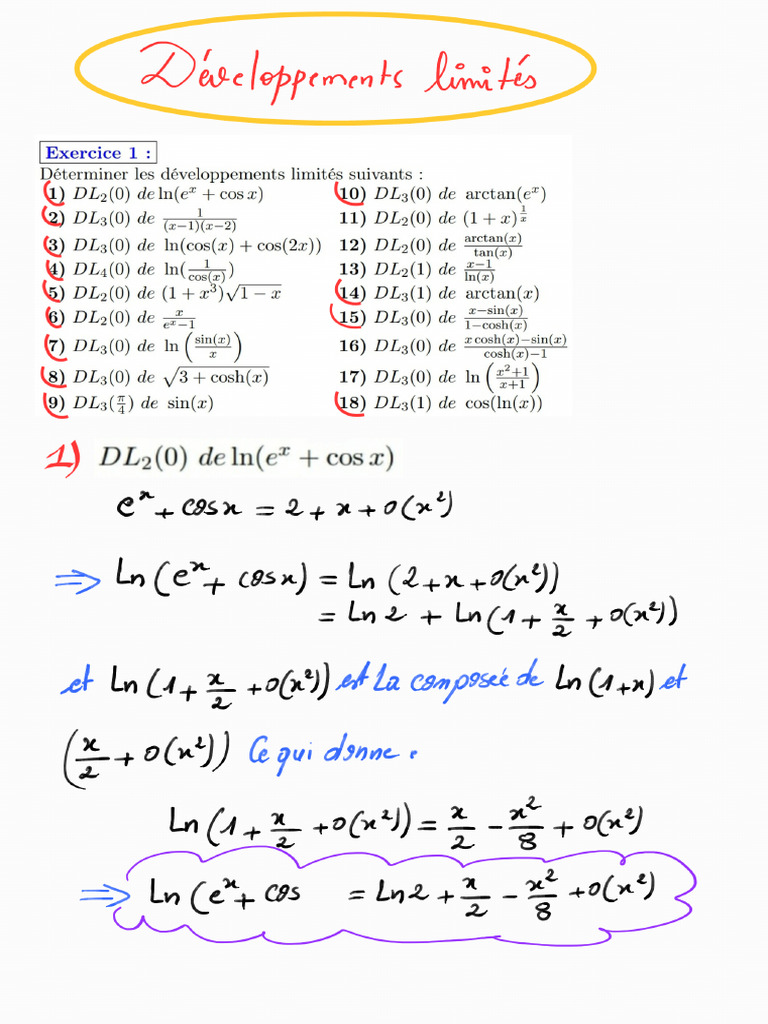 Développements limités
Exercice 1 :
Déterminer les développements limités suivants :
1) DL₂(0) de ln(eˣ + cos x)
2) DL₃(0) de 1/((x−1)(x−2))
3) DL₃(0) de ln(cos(x) + cos(2x))
4) DL₄(0) de ln(1/cos(x))
5) DL₂(0) de (1 + x³)√(1 − x)
6) DL₂(0) de x/(eˣ−1)
7) DL₃(0) de ln(sin(x)/x)
8) DL₃(0) de √(3 + cosh(x))
9) DL₃(π/4) de sin(x)
10) DL₃(0) de arctan(eˣ)
11) DL₂(0) de (1 + x)^(1/x)
12) DL₂(0) de arctan(x)/tan(x)
13) DL₂(1) de (x−1)/ln(x)
14) DL₃(1) de arctan(x)
15) DL₃(0) de (x−sin(x))/(1−cosh(x))
16) DL₃(0) de (x cosh(x)−sin(x))/(cosh(x)−1)
17) DL₃(0) de ln((x²+1)/(x+1))
18) DL₃(1) de cos(ln(x))
1) DL₂(0) de ln(eˣ + cos x)
eˣ + cos x = 2 + x + o(x²)
⇒ Ln(eˣ + cos x) = Ln(2 + x + o(x²))
= Ln 2 + Ln(1 + x/2 + o(x²))
et Ln(1 + x/2 + o(x²)) est la composée de Ln(1+x) et
(x/2 + o(x²)) Ce qui donne :
Ln(1 + x/2 + o(x²)) = x/2 − x²/8 + o(x²)
⇒ Ln(eˣ + cos = Ln 2 + x/2 − x²/8 + o(x²)